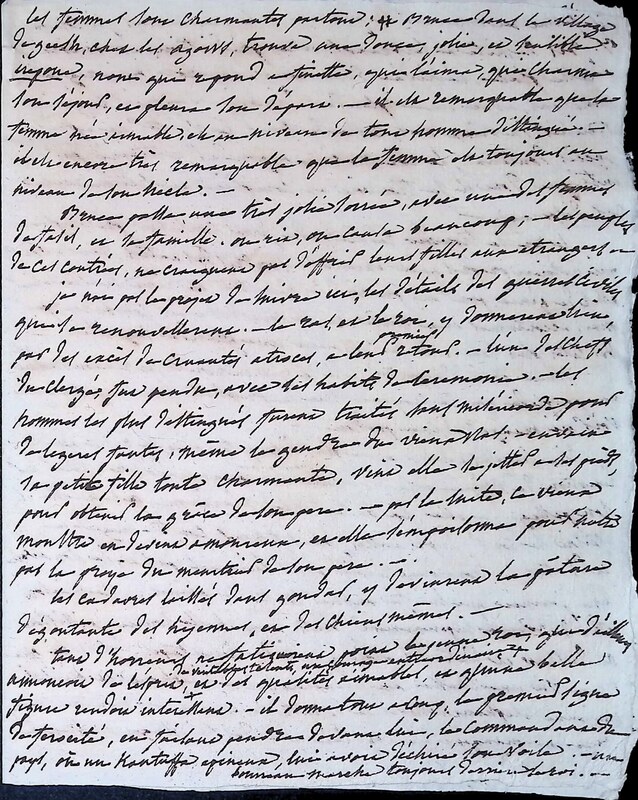 les femmes sont charmantes partout: et Bruce dans le village
de geesh, chez les agows, trouve une douce, jolie, et sensible
irepone, nom qui repond a finette, qui l'aima, qui charma
son séjour, et pleura son départ. — il est remarquable que la
femme née aimable, est au niveau de tout homme distingué. —
il est encore très remarquable que la femme est toujours au
niveau de son siècle. —
Bruce passe une très jolie soirée, avec une des femmes
de fasil, et sa famille. on rit, on causa beaucoup; — les peuples
de ces contrées, ne craignent pas d'offrir leurs filles aux étrangers —
je n'ai pas le projet de suivre ici, les détails des guerres civiles
qui se renouvellerent. — le ras, et le roi, y donnerent lieu,
par des excès de cruautés atroces, a leur premier retour. — l'un des chefs
du clergé, fut pendu, avec ses habits de ceremonie. — les
hommes les plus distingués furent traités sans miséricorde pour
de legeres fautes, même le gendre du vieux ras. — envain
sa petite fille toute charmante, vint elle se jetter a ses pieds,
pour obtenir la grâce de son pere. — par la suite, ce vieux
monstre en devint amoureux, et elle s'empoisonna pour n'être
pas la proie du meurtrier de son pere. —
les cadavres laissés dans gondar, y devinrent la pâture
dégoutante des hyennes, et des chiens mêmes. —
tant d'horreurs ne fletrirent point le jeune roi, qui d'ailleurs
annoncoit de l'esprit, et des qualités aimables, et qu'une belle
figure rendoit interessant. — il donna tout a coup, le premier signe
de ferocité, en faisant pendre devant lui, le commandant du
pays, où un Kantuffa epineux, lui avoit déchiré son voile. — un
bourreau marche toujours derriere le roi. —